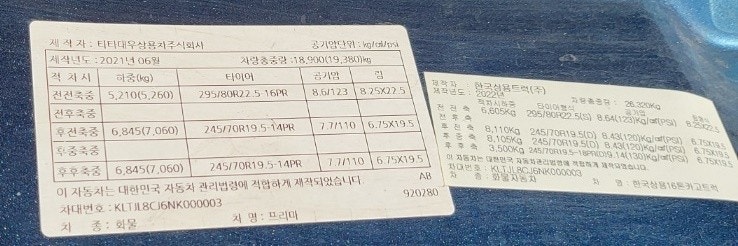 제 작 자 : 타타대우상용차주식회사 공기압단위 : kg/㎠/psi
제작년도 : 2021년 06월 차량총중량 : 18,900(19,380)kg
적 차 시 하중(kg) 타이어 공기압 림
전전축중 5,210(5,260) 295/80R22.5-16PR 8.6/123 8.25X22.5
전후축중
후전축중 6,845(7,060) 245/70R19.5-14PR 7.7/110 6.75X19.5
후중축중
후후축중 6,845(7,060) 245/70R19.5-14PR 7.7/110 6.75X19.5
이 자동차는 대한민국 자동차 관리법령에 적합하게 제작되었습니다. AB
차대번호 : KLTJL8CJ6NK000003 920280
차 종 : 화물 차 명 : 프리마
제작자 : 한국상용트럭(주)
제작년도 : 2022년 차량총중량 : 26,320Kg
적차시하중 타이어형식 공기압 림형식
전 전 축 6,605Kg 295/80R22.5(S) 8.64(123)Kg/㎠(PSI) 8.25X22.5
전 후 축
후 전 축 8,110Kg 245/70R19.5(D) 8.43(120)Kg/㎠(PSI) 6.75X19.5
후 중 축 8,105Kg 245/70R19.5(D) 8.43(120)Kg/㎠(PSI) 6.75X19.5
후 후 축 3,500Kg 245/70R19.5-18PR(D) 9.14(130)Kg/㎠(PSI) 6.75X19.5
이 자동차는 대한민국 자동차관리법령에 적합하게 제작되었습니다.
차대번호 : KLTJL8CJ6NK000003
차 종 : 화물자동차 차 명 : 한국상용16톤카고트럭